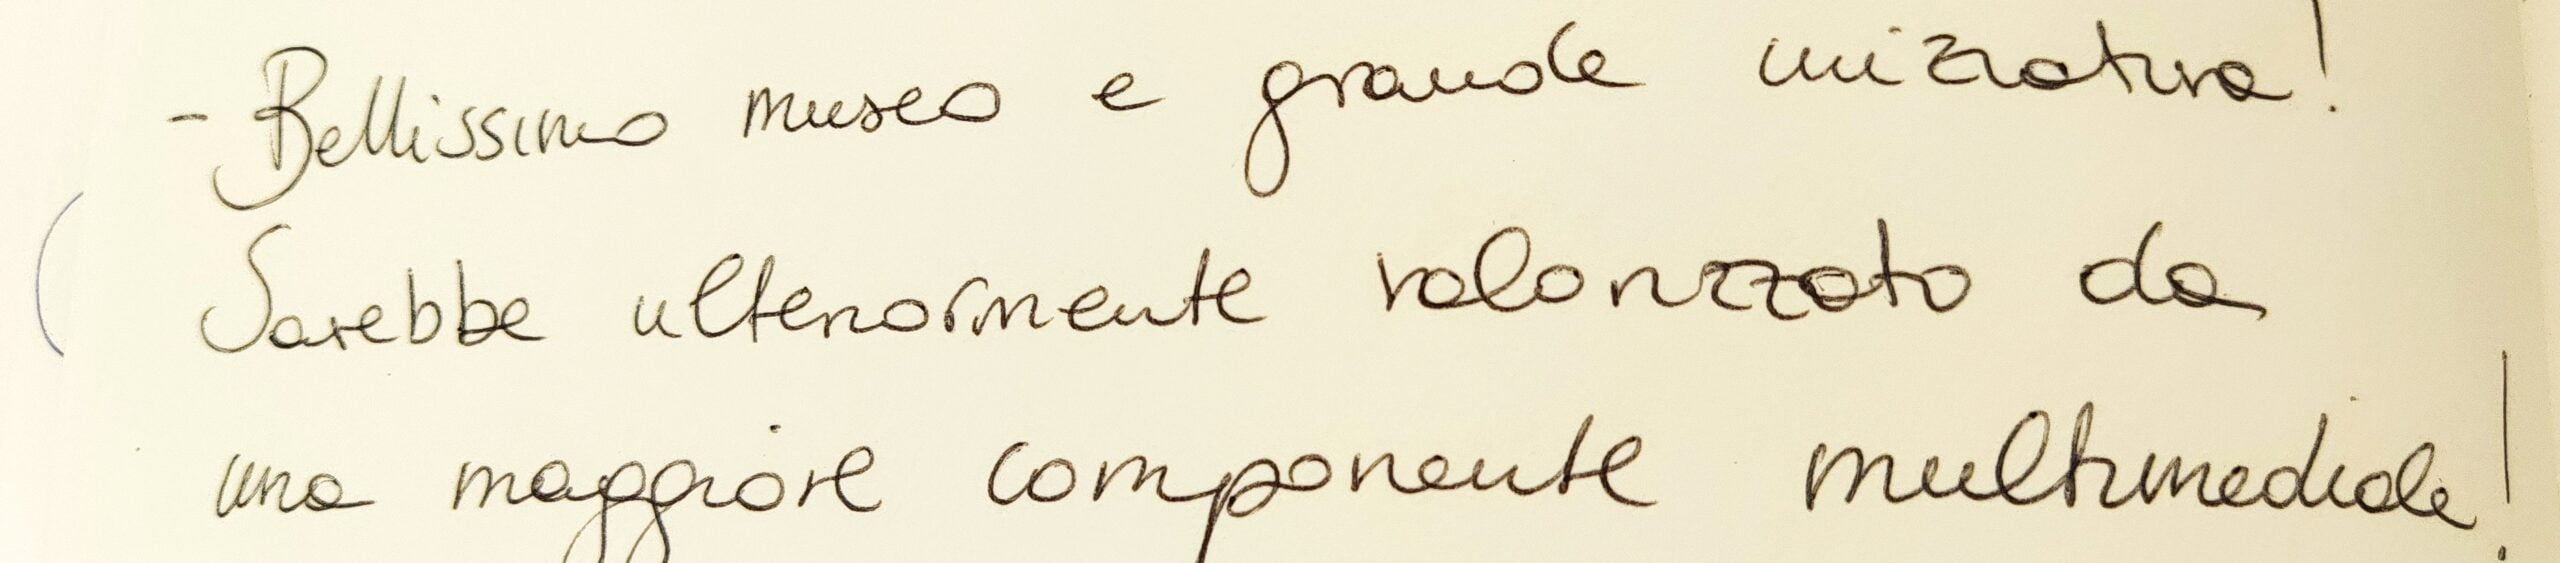 - Bellissimo museo e grande iniziativa!
Sarebbe ulteriormente valorizzato da
una maggiore componente multimediale!